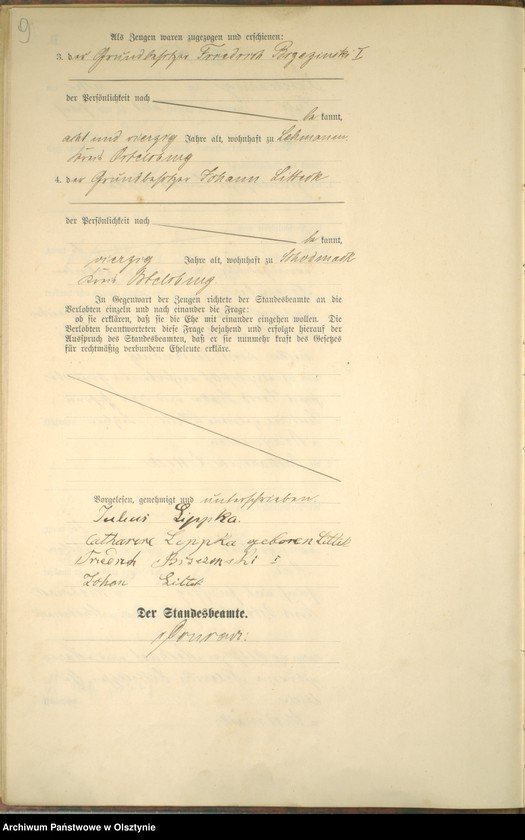 9
Als Zeugen waren zugezogen und erschienen:
3. der Grundbesitzer Friedrich Brzezinski I
der Persönlichkeit nach
be kannt,
acht und vierzig Jahre alt, wohnhaft zu Lehmanen
Kreis Ortelsburg
4. der Grundbesitzer Johann Litteck
der Persönlichkeit nach
be kannt,
vierzig Jahre alt, wohnhaft zu
Kreis Ortelsburg
In Gegenwart der Zeugen richtete der Standesbeamte an die
Verlobten einzeln und nach einander die Frage:
ob sie erklären, daß sie die Ehe mit einander eingehen wollen. Die
Verlobten beantworteten diese Frage bejahend und erfolgte hierauf der
Ausspruch des Standesbeamten, daß er sie nunmehr kraft des Gesetzes
für rechtmäßig verbundene Eheleute erkläre.
Vorgelesen, genehmigt und unterschrieben
Julius Lippka.
Catharine Lippka geboren Littek
Friedrich I
Johan Littek
Der Standesbeamte.
Archiwum Państwowe w Olsztynie